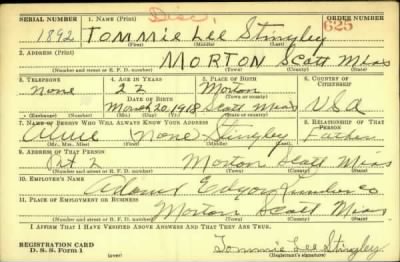 Disc.
SERIAL NUMBER 1. NAME (Print) ORDER NUMBER
1892 TOMMIE Lee Stingley 625
(First) (Middle) (Last)
2. ADDRESS (Print)
MORTON Scott Miss
(Number and street or R. F. D. number) (Town) (County) (State)
3. TELEPHONE 4. AGE IN YEARS 5. PLACE OF BIRTH 6. COUNTRY OF CITIZENSHIP
None 22 Morton
DATE OF BIRTH (Town or county)
March 20, 1918 Scott Miss U S A
(Exchange) (Number) (Mo.) (Day) (Yr.) (State or country)
7. NAME OF PERSON WHO WILL ALWAYS KNOW YOUR ADDRESS 8. RELATIONSHIP OF THAT PERSON
None Stingley Father
(Mr., Mrs., Miss) (First) (Middle) (Last)
9. ADDRESS OF THAT PERSON
Rt 2 Morton Scott Miss
(Number and street or R. F. D. number) (Town) (County) (State)
10. EMPLOYER'S NAME
Adams Edgar
11. PLACE OF EMPLOYMENT OR BUSINESS
Morton Scott Miss
(Number and street or R. F. D. number) (Town) (County) (State)
I AFFIRM THAT I HAVE VERIFIED ABOVE ANSWERS AND THAT THEY ARE TRUE.
REGISTRATION CARD
D. S. S. Form 1 (over) Tommie Lee Stingley
(Registrant's signature)